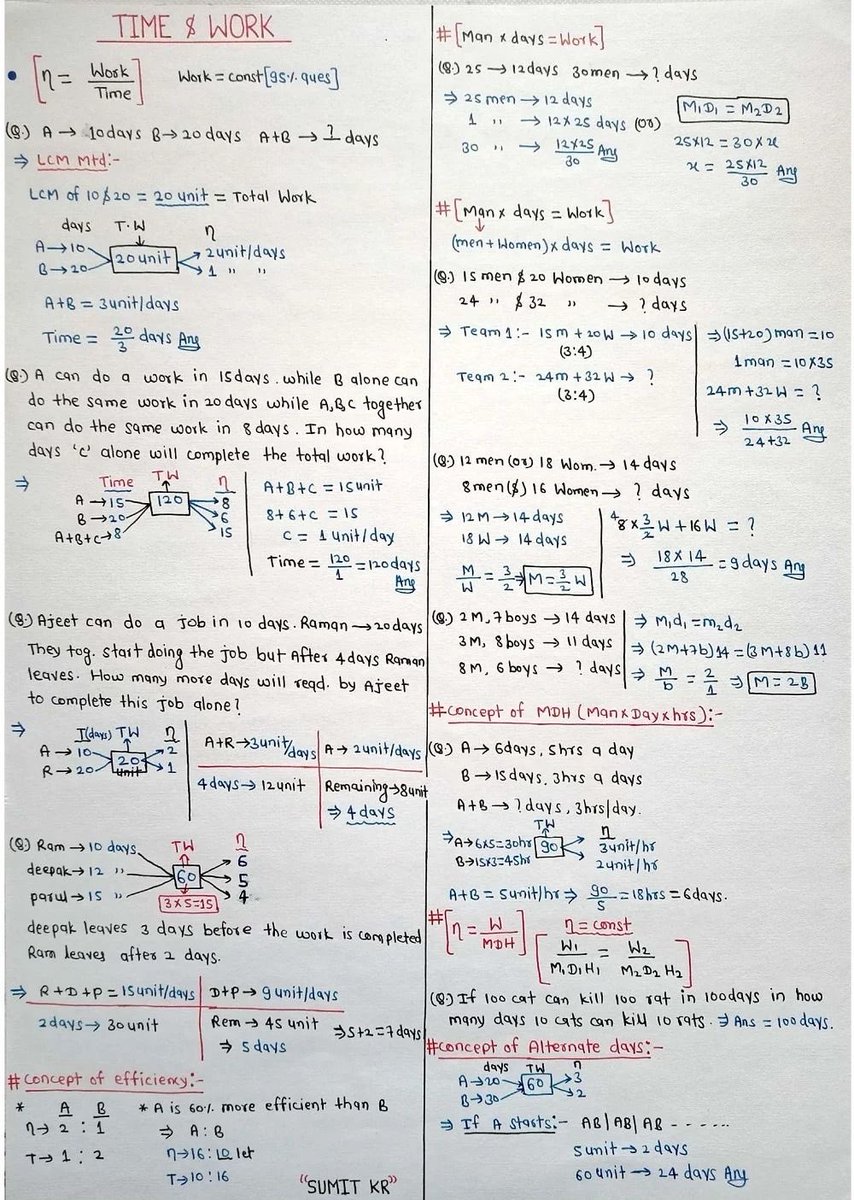 TIME & WORK
• [η = Work/Time] Work = const [95% ques]
(Q.) A → 10days B → 20 days A+B → ? days
⇒ LCM Mtd:-
LCM of 10 & 20 = 20 unit = Total Work
days T.W η
A → 10 20 unit 2unit/days
B → 20 1 " "
A+B = 3unit/days
Time = 20/3 days Ans
(Q.) A can do a work in 15days. while B alone can
do the same work in 20 days while A,B,C together
can do the same work in 8 days. In how many
days 'c' alone will complete the total work?
⇒ Time TW η
A → 15 120 8
B → 20 6
A+B+C → 8 15
A+B+C = 15unit
8+6+c = 15
C = 1 unit/day
Time = 120/1 = 120days
Ans
(Q.) Ajeet can do a job in 10 days. Raman → 20days
They tog. start doing the job but After 4 days Raman
leaves. How many more days will reqd. by Ajeet
to complete this job alone?
⇒ T(days) TW η
A → 10 20 unit 2
R → 20 1
A+R → 3unit/days A → 2unit/days
4days → 12unit Remaining → 8unit
⇒ 4 days
(Q.) Ram → 10 days TW η
deepak → 12 " 60 6
parul → 15 " 5
3x5=15 4
deepak leaves 3 days before the work is completed
Ram leaves after 2 days.
⇒ R+D+P = 15unit/days D+P → 9unit/days
2days → 30unit Rem → 45 unit ⇒ 5+2=7days
⇒ 5 days
# concept of efficiency:-
* A B
η → 2 : 1
T → 1 : 2
* A is 60% more efficient than B
⇒ A : B
η → 16 : 10 let
T → 10 : 16
"SUMIT KR"
# [Man x days = Work]
(Q.) 25 → 12days 30men → ? days
⇒ 25men → 12 days
1 " → 12x25 days (or)
30 " → 12x25/30 Ans
M₁D₁ = M₂D₂
25x12 = 30 x x
x = 25x12/30 Ans
# [Man x days = Work]
(men + Women) x days = Work
(Q.) 15 men & 20 Women → 10 days
24 " & 32 " → ? days
⇒ Team 1:- 15m + 20W → 10 days
(3:4)
Team 2:- 24m + 32W → ?
(3:4)
⇒ (15+20)man = 10
1man = 10x35
24m + 32W = ?
⇒ 10x35/24+32 Ans
(Q.) 12 men (or) 18 Wom. → 14 days
8men (&) 16 Women → ? days
⇒ 12M → 14 days
18W → 14 days
M/W = 3/2 ⇒ M = 3/2 W
⁴8 x 3/2 W + 16W = ?
⇒ 18x14/28 = 9days Ans
(Q.) 2M, 7boys → 14 days
3M, 8boys → 11 days
8M, 6boys → ? days
⇒ M₁d₁ = m₂d₂
⇒ (2M+7b)14 = (3M+8b)11
⇒ M/b = 2/1 ⇒ M = 2B
# concept of MDH (ManxDayxhrs):-
(Q.) A → 6days, 5hrs a day
B → 15days, 3hrs a days
A+B → ? days, 3hrs/day.
TW η
⇒ A → 6x5=30hr 90 3unit/hr
B → 15x3=45hr 2unit/hr
A+B = 5unit/hr ⇒ 90/5 = 18hrs = 6days.
# [η = W/MDH] η = const
[W₁/M₁D₁H₁ = W₂/M₂D₂H₂]
(Q.) If 100 cat can kill 100 rat in 100days in how
many days 10 cats can kill 10 rats. ⇒ Ans = 100days.
# concept of Alternate days:-
days TW η
A → 20 60 3
B → 30 2
⇒ If A starts:- AB | AB | AB - - - - - -
5unit → 2 days
60 unit → 24 days Ans